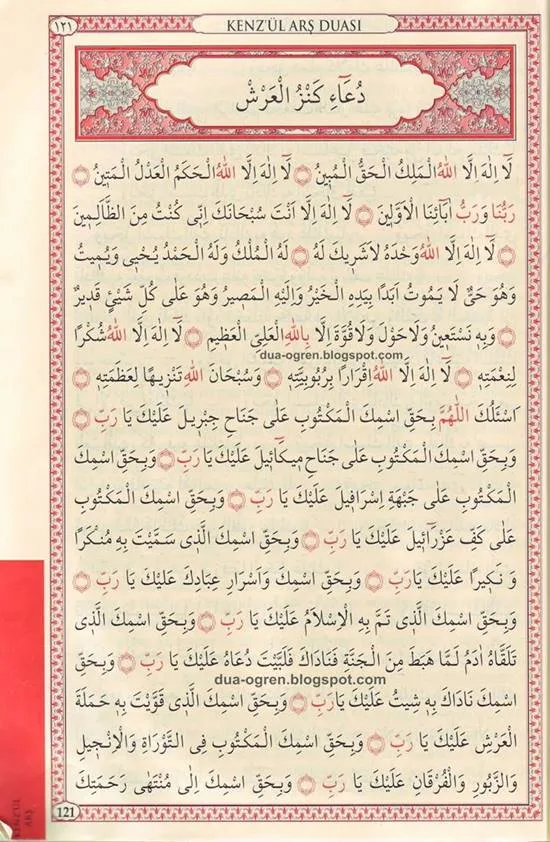 ١٢١ KENZ'ÜL ARŞ DUASI
دُعَٓاءِ كَنْزُ الْعَرْشْ
لَٓا اِلٰهَ اِلَّا اللّٰهُ الْمَلِكُ الْحَقُّ الْمُبٖينُ ۞ لَٓا اِلٰهَ اِلَّا اللّٰهُ الْحَكَمُ الْعَدْلُ الْمَتٖينُ ۞
رَبُّنَا وَرَبُّ اٰبَٓائِنَا الْاَوَّلٖينَ ۞ لَٓا اِلٰهَ اِلَّا اَنْتَ سُبْحَانَكَ اِنّٖى كُنْتُ مِنَ الظَّالِمٖينَ
۞ لَٓا اِلٰهَ اِلَّا اللّٰهُ وَحْدَهُ لَاشَرٖيكَ لَهُ ۞ لَهُ الْمُلْكُ وَلَهُ الْحَمْدُ يُحْيٖى وَيُمٖيتُ
وَهُوَ حَىٌّ لَا يَمُوتُ اَبَدًا بِيَدِهِ الْخَيْرُ وَاِلَيْهِ الْمَصٖيرُ وَهُوَ عَلٰى كُلِّ شَيْئٍ قَدٖيرٌ
۞ وَبِهٖ نَسْتَعٖينُ وَلَاحَوْلَ وَلَاقُوَّةَ اِلَّا بِاللّٰهِ الْعَلِىِّ الْعَظٖيمِ ۞ لَٓا اِلٰهَ اِلَّا اللّٰهُ شُكْرًا
dua-ogren.blogspot.com
لِنِعْمَتِهٖ ۞ لَٓا اِلٰهَ اِلَّا اللّٰهُ اِقْرَارًا بِرُبُوبِيَّتِهٖ ۞ وَسُبْحَانَ اللّٰهِ تَنْزٖيهًا لِعَظَمَتِهٖ ۞
اَسْئَلُكَ اللّٰهُمَّ بِحَقِّ اسْمِكَ الْمَكْتُوبِ عَلٰى جَنَاحِ جِبْرٖيلَ عَلَيْكَ يَا رَبِّ ۞
وَبِحَقِّ اسْمِكَ الْمَكْتُوبِ عَلٰى جَنَاحِ مٖيكَٓائٖيلَ عَلَيْكَ يَا رَبِّ ۞ وَبِحَقِّ اسْمِكَ
الْمَكْتُوبِ عَلٰى جَبْهَةِ اِسْرَافٖيلَ عَلَيْكَ يَا رَبِّ ۞ وَبِحَقِّ اسْمِكَ الْمَكْتُوبِ
عَلٰى كَفِّ عَزْرَٓائٖيلَ عَلَيْكَ يَا رَبِّ ۞ وَبِحَقِّ اسْمِكَ الَّذٖى سَمَّيْتَ بِهٖ مُنْكَرًا
وَ نَكٖيرًا عَلَيْكَ يَارَبِّ ۞ وَبِحَقِّ اسْمِكَ وَاَسْرَارِ عِبَادِكَ عَلَيْكَ يَا رَبِّ ۞
وَبِحَقِّ اسْمِكَ الَّذٖى تَمَّ بِهِ الْاِسْلَامُ عَلَيْكَ يَا رَبِّ ۞ وَبِحَقِّ اسْمِكَ الَّذٖى
تَلَقَّاهُ اٰدَمُ لَمَّا هَبَطَ مِنَ الْجَنَّةِ فَنَادَاكَ فَلَبَّيْتَ دُعَاهُ عَلَيْكَ يَا رَبِّ ۞ وَبِحَقِّ
dua-ogren.blogspot.com
اسْمِكَ نَادَاكَ بِهٖ شٖيتُ عَلَيْكَ يَارَبِّ ۞ وَبِحَقِّ اسْمِكَ الَّذٖى قَوَّيْتَ بِهٖ حَمَلَةَ
الْعَرْشِ عَلَيْكَ يَا رَبِّ ۞ وَبِحَقِّ اسْمِكَ الْمَكْتُوبِ فِى التَّوْرَاةِ وَالْاِنْجٖيلِ
وَالزَّبُورِ وَالْفُرْقَانِ عَلَيْكَ يَا رَبِّ ۞ وَبِحَقِّ اسْمِكَ اِلٰى مُنْتَهٰى رَحْمَتِكَ
121